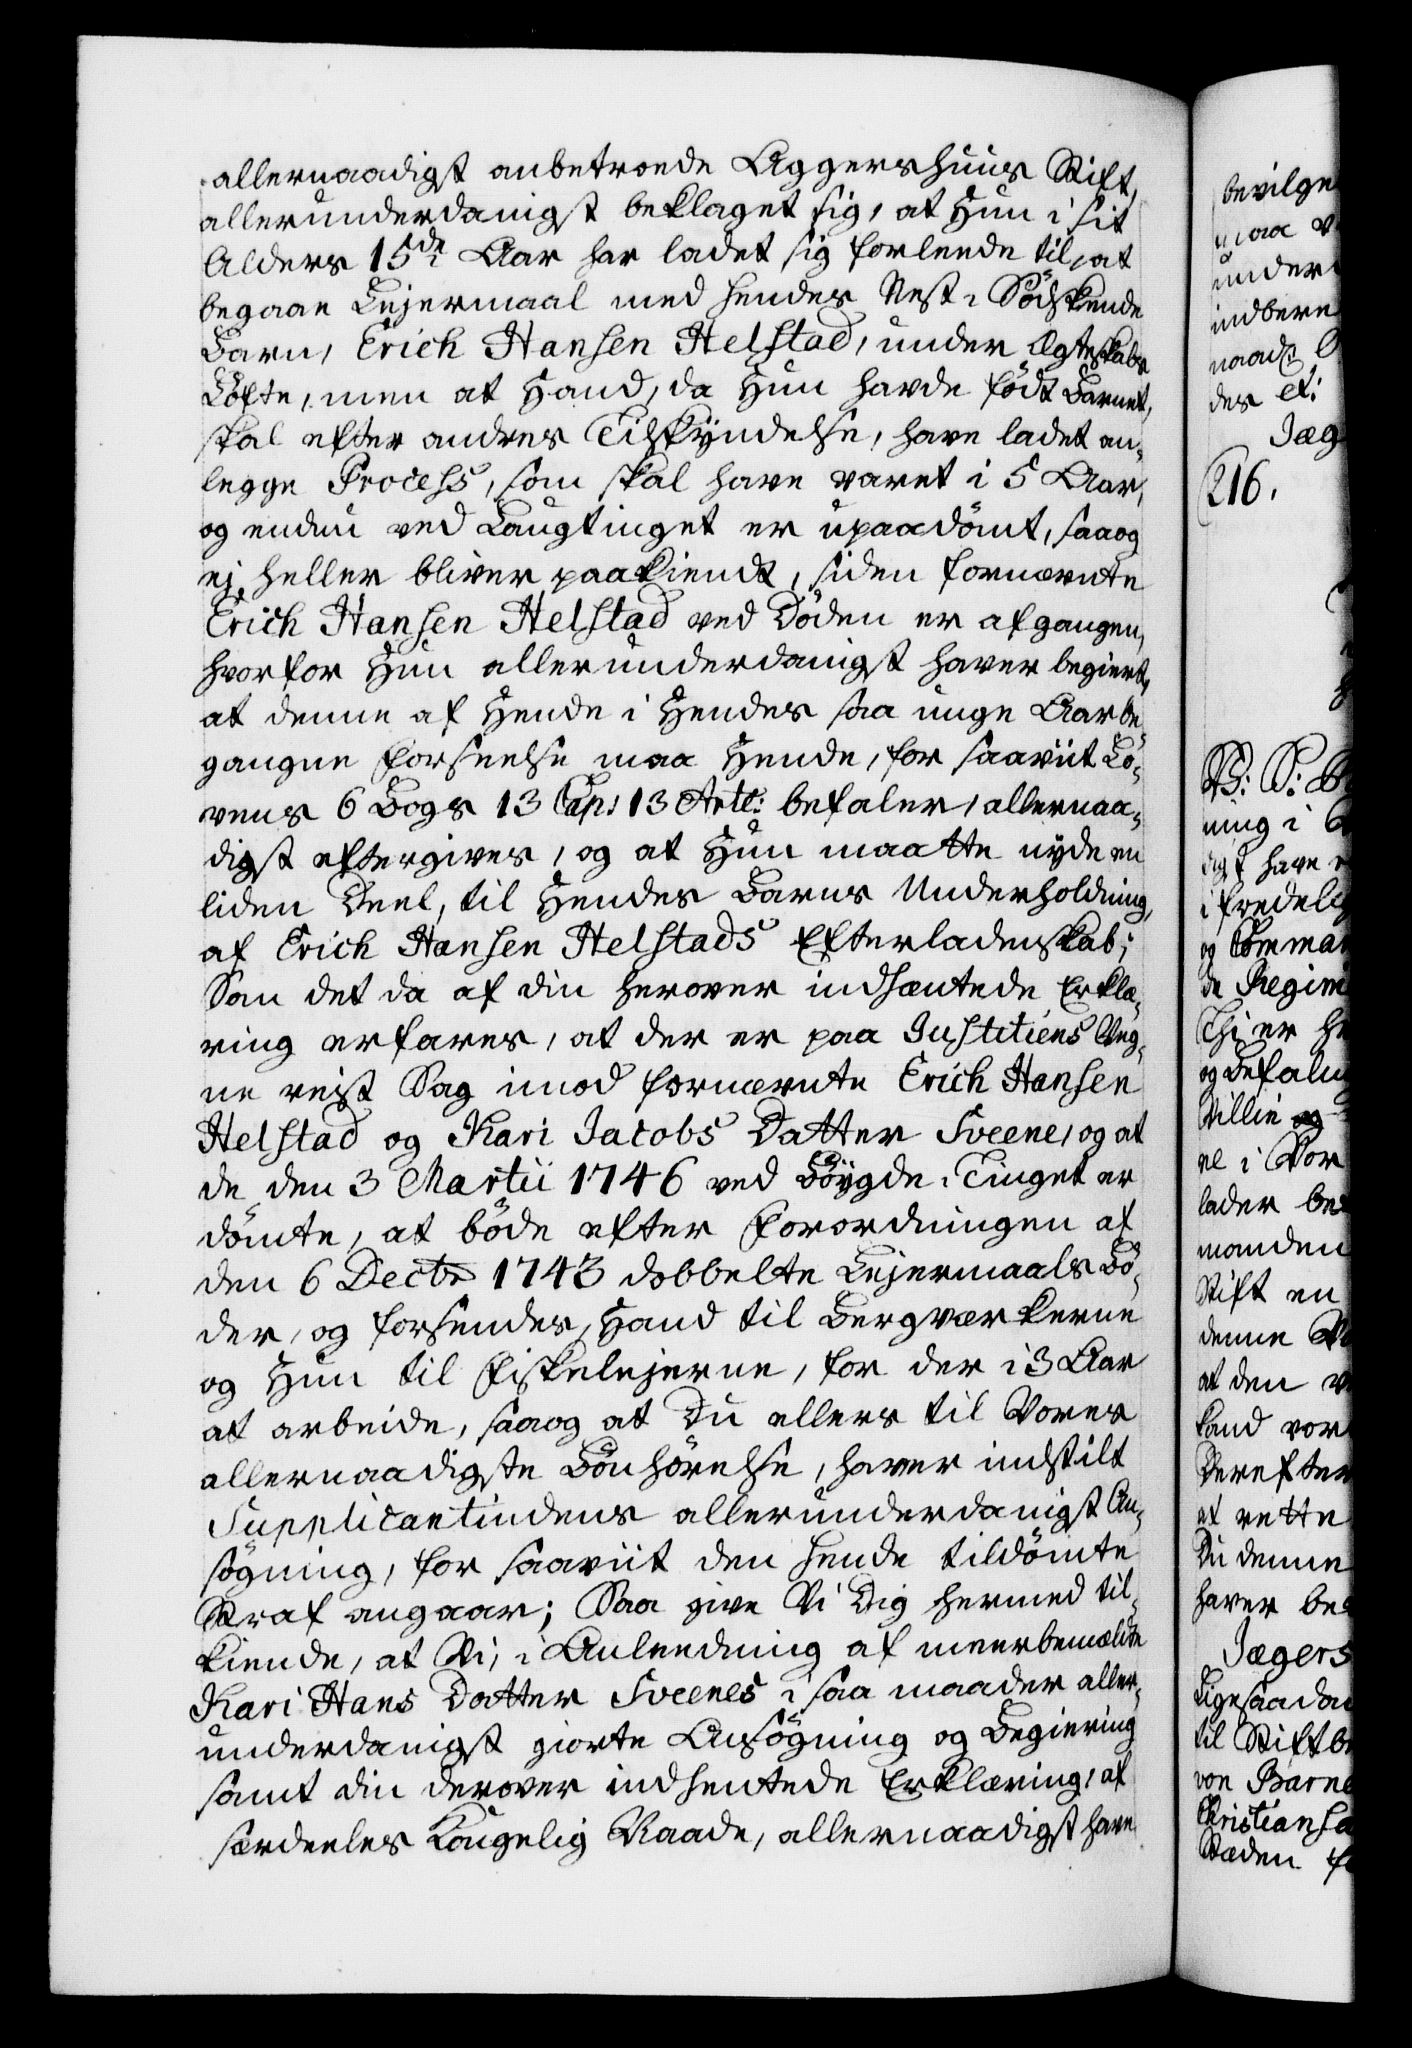 allernaadigst anbetroede Aggershuus Stift,
allerunderdanigst beklaget sig, at Hun i sit
Alders 15de Aar har ladet sig forleede til, at
begaae Lejermaal med hendes Nest-Södskende
Barn, Erich Hansen Helstad, under Ægteskabs
Löfte, men at Hand, da Hun havde födt Barnet,
skal efter andres Tilskyndelse, have ladet an-
legge Process, som skal have varet i 5 Aar,
og endnu ved Laugtinget er upaadömt, saaog
ej heller bliver paakiendt, siden fornævnte
Erich Hansen Helstad ved Döden er afgangen,
hvorfor Hun allerunderdanigst haver begiert,
at denne af Hende i Hendes saa unge Aar be-
gangne Forseelse maa Hende, for saaviit Lo-
vens 6 Bogs 13 Cap: 13 Artl: befaler, allernaa-
digst eftergives, og at Hun maatte nyde en
liden Deel, til Hendes Barns Underholdning,
af Erich Hansen Helstads Efterladenskab;
Som det da af din herover indhæntede Erklæ-
ring erfares, at der er paa Justitiens Veg-
ne reist Sag imod fornævnte Erich Hansen
Helstad og Kari Jacobs Datter Sveene, og at
de den 3 Martii 1746 ved Böygde-Tinget er
dömte, at böde efter Forordningen af
den 6 Decbr 1743 dobbelte Lejermaals Bö-
der, og forsendes, Hand til Bergværkerne
og Hun til Fiskelejerne, for der i 3 Aar
at arbeide, saaog at Du ellers til Vores
allernaadigste Bönhörelse, haver indstilt
Supplicantindens allerunderdanigst An-
sögning, for saaviit den hende tildömte
Straf angaar; Saa give Vi Dig hermed til-
kiende, at Vi, i Anleedning af meerbemælte
Kari Hans Datter Sveenes i saa maader aller-
underdanigst giorte Ansögning og Begiering
samt din derover indhentede Erklæring, af
særdeeles Kongelig Naade, allernaadigst have
bevilge
maa
under
indbere
naad
des et:
Jæg
216.
ning i
digst have
i fredelig
og Comman
de Regim
Thi er
og Befaling
Villie og
re i Vor
lader be
manden
Stift en
denne
at den
kand vor
Derefter
at rette
Du denne
haver be
Jægers
Ligesaadan
til Stiftbe
von Barne
Christiansa
Steden